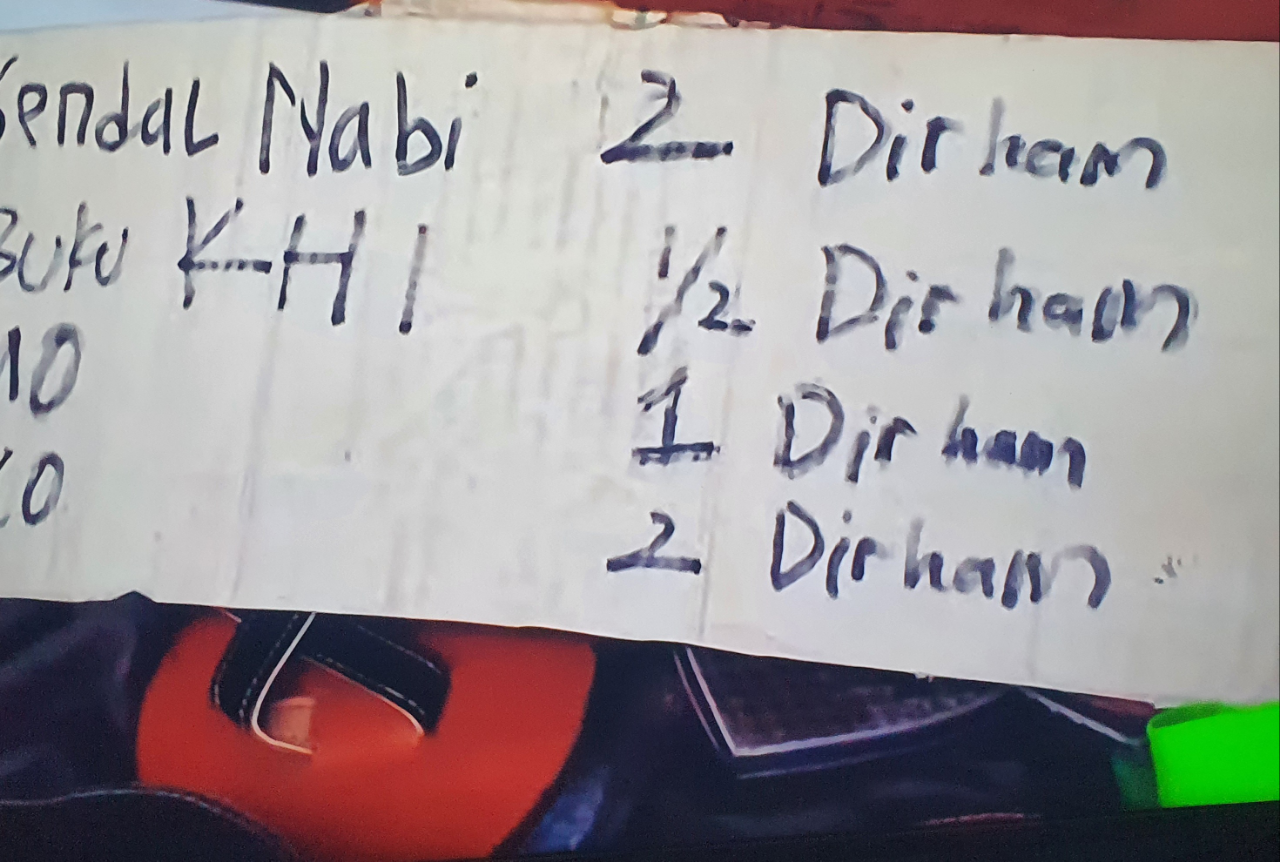 Sendal Nabi 2 Dirham
Buku KHI 1/2 Dirham
10 1 Dirham
0 2 Dirham